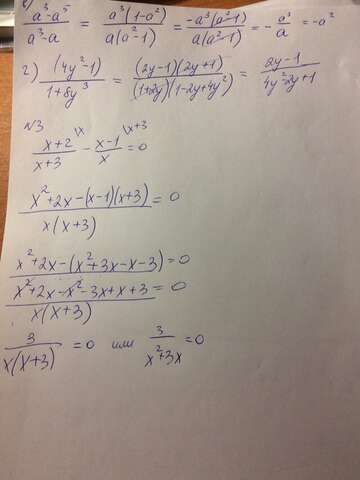 в) (a³-a⁵)/(a³-a) = (a³(1-a²))/(a(a²-1)) = (-a³(a²-1))/(a(a²-1)) = -a³/a = -a²
г) (4y²-1)/(1+8y³) = ((2y-1)(2y+1))/((1+2y)(1-2y+4y²)) = (2y-1)/(4y²-2y+1)
№3
\x \x+3
(x+2)/(x+3) - (x-1)/x = 0
(x²+2x-(x-1)(x+3))/(x(x+3)) = 0
x²+2x-(x²+3x-x-3) = 0
(x²+2x-x²-3x+x+3)/(x(x+3)) = 0
3/(x(x+3)) = 0 или 3/(x²+3x) = 0